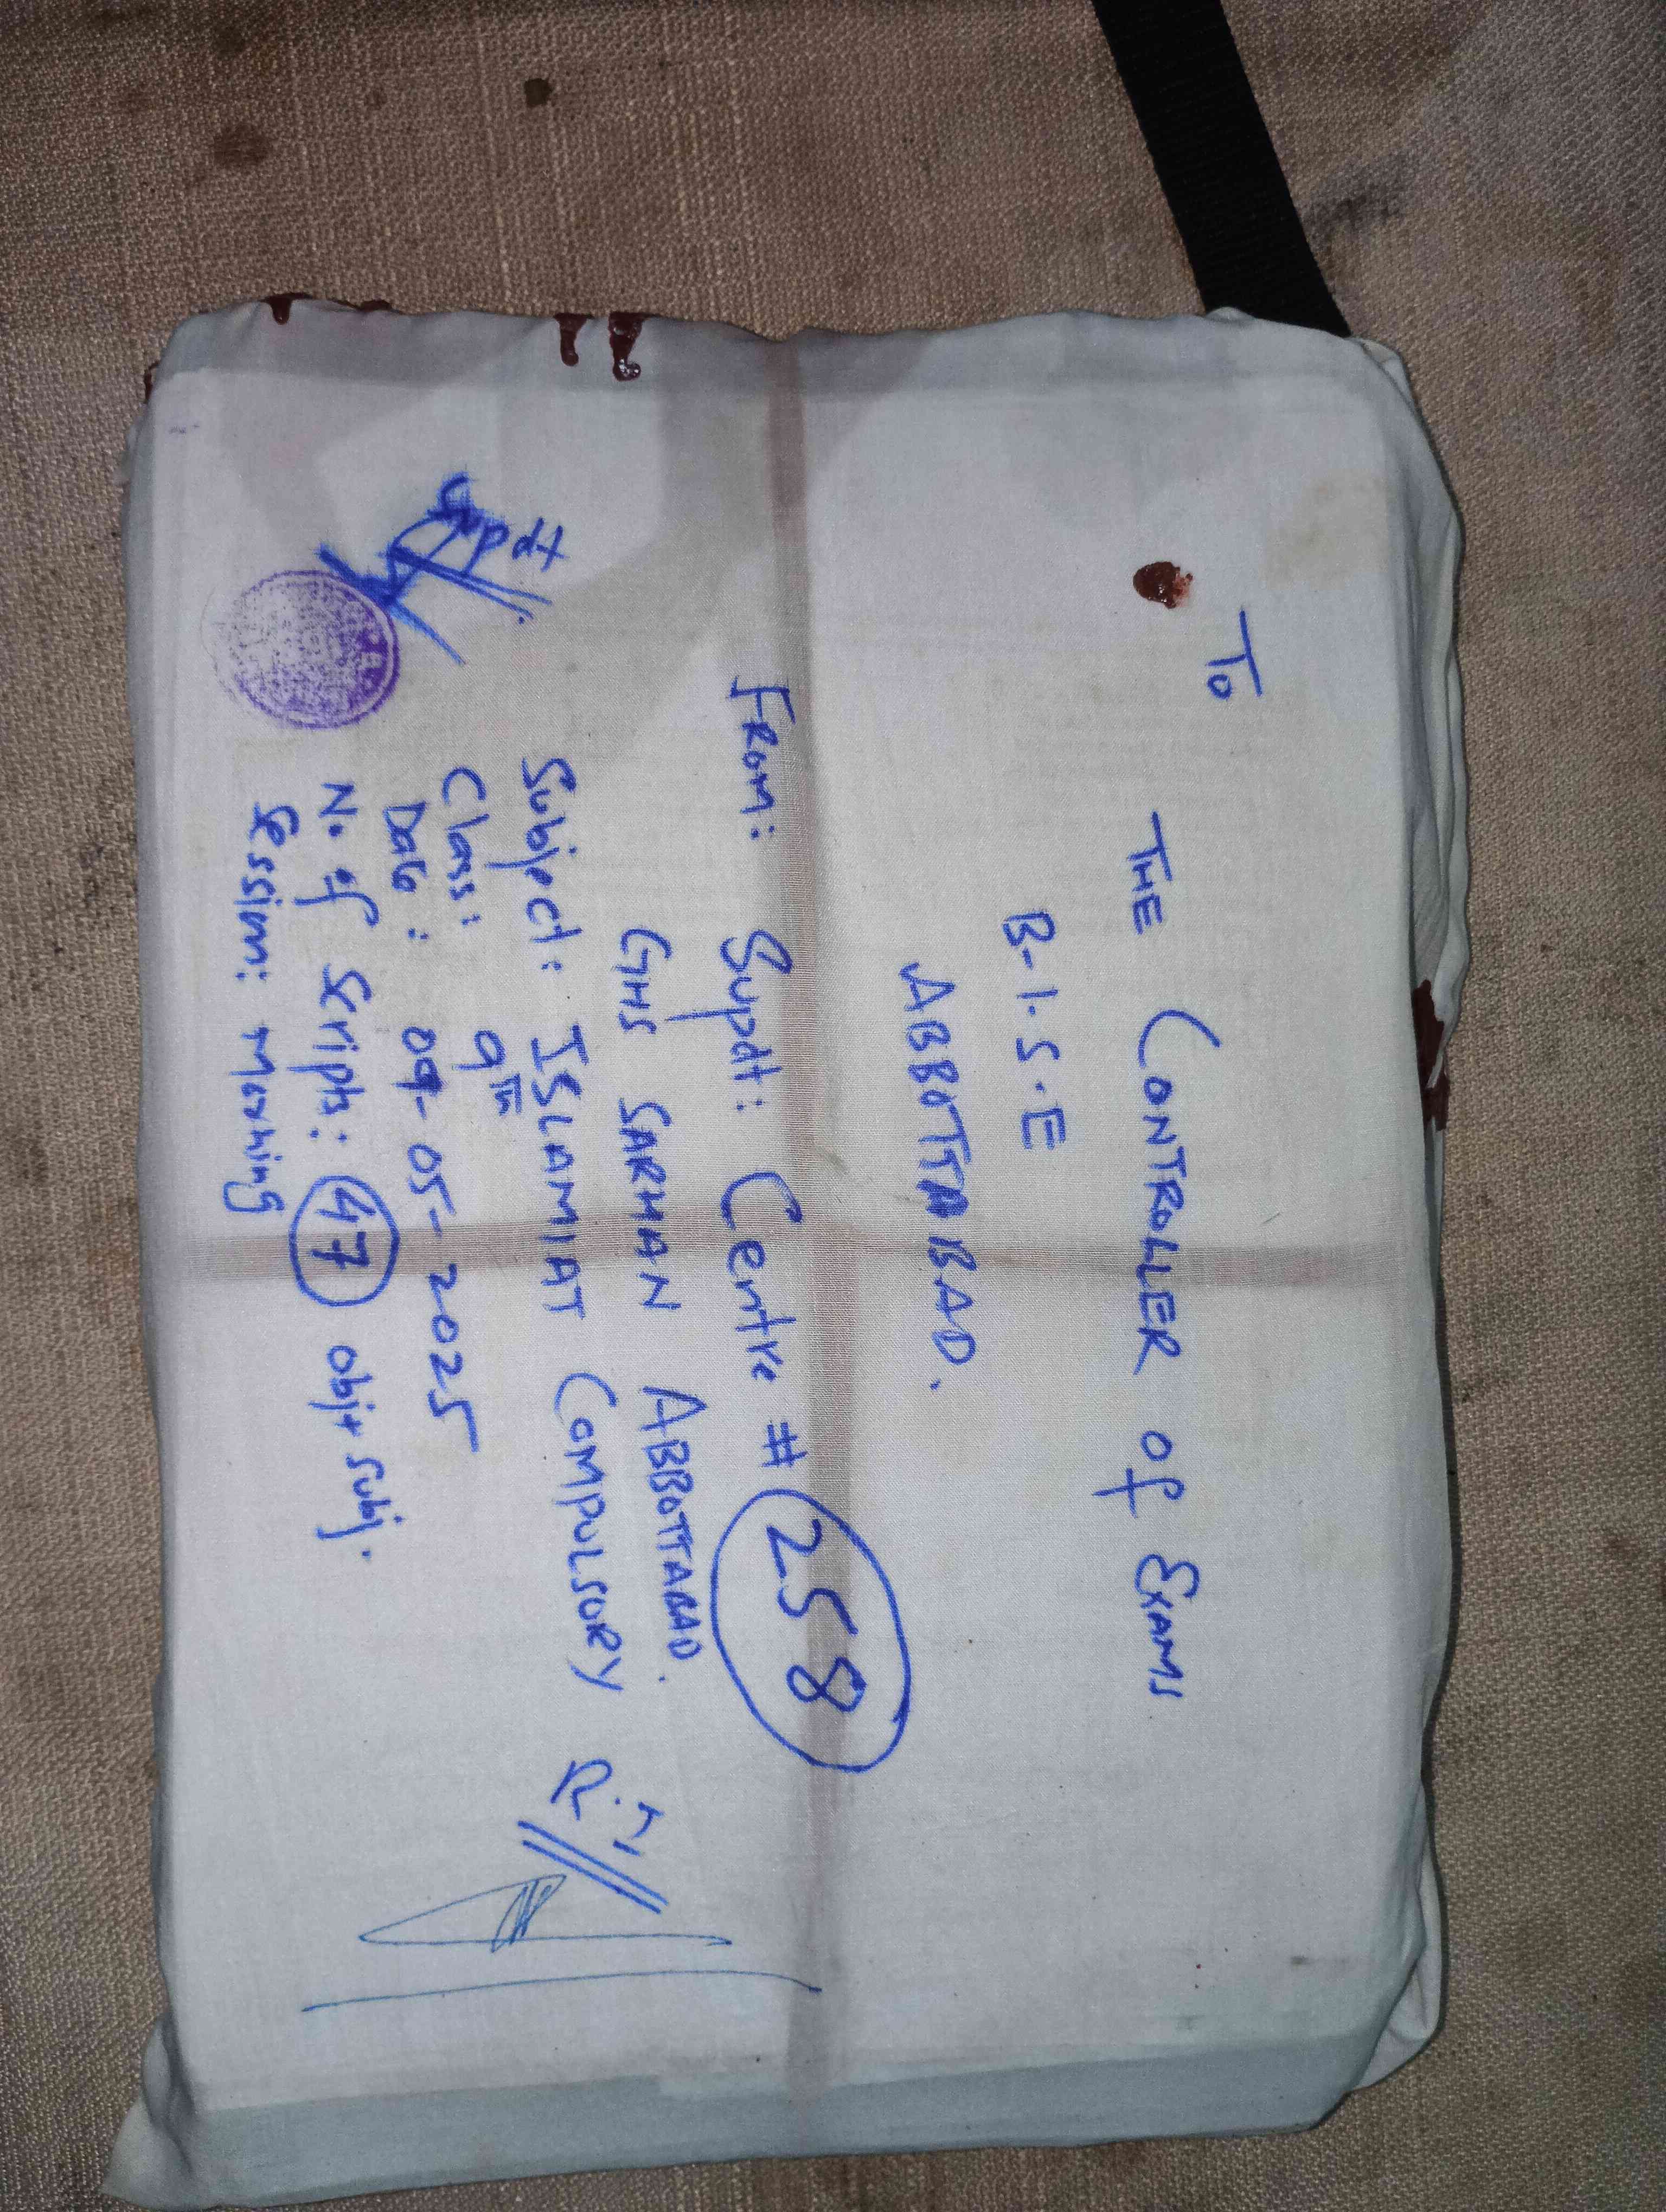 To
THE CONTROLLER OF EXAMS
B-I.S.E
ABBOTTABAD.
FROM: Supdt: Centre # 258
GHS SARHAN ABBOTTABAD.
Subject: ISLAMIAT COMPULSORY
Class: 9TH
Date: 09-05-2025
No of Scripts: 47 obj+subj.
Session: Morning
Supdt
R.I